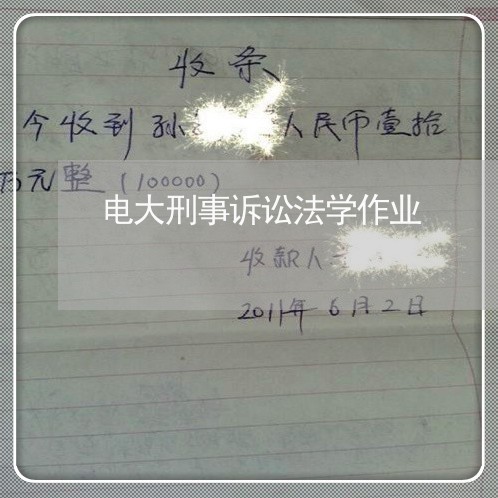 收条
今收到孙 人民币壹拾
万元整(100000)
电大刑事诉讼法学作业
收款人
2011年6月2日